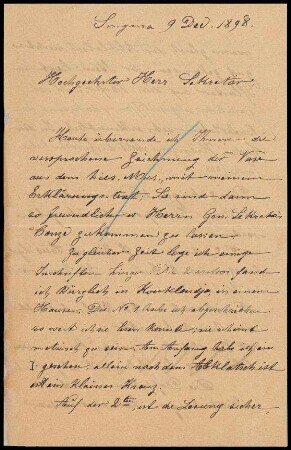 Smyrna 9 Dec. 1898.
Hochgeehrter Herr Sekretär,
Heute übersende ich Ihnen die
versprochene Zeichnung der Vase
aus dem hies. Mus. mit meinem
Erklärungstext. Sie sind dann
so freundlich es Herrn Gen. Sekretär
Conze zukommen zu lassen
Zu gleicher Zeit lege ich einige
Inschriften hinzu. № 1 2 fand
ich kürzlich in Koukloudja, in einem
Hause. Die № 1 habe ich abgeschrieben
so weit ich es lesen konnte; sie scheint
metrisch zu sein. Am Anfang habe ich ein
I gesehen; allein nach dem Abklatsch ist
es ein kleines Kreuz.
Auf der 2ten ist die Lesung sicher,